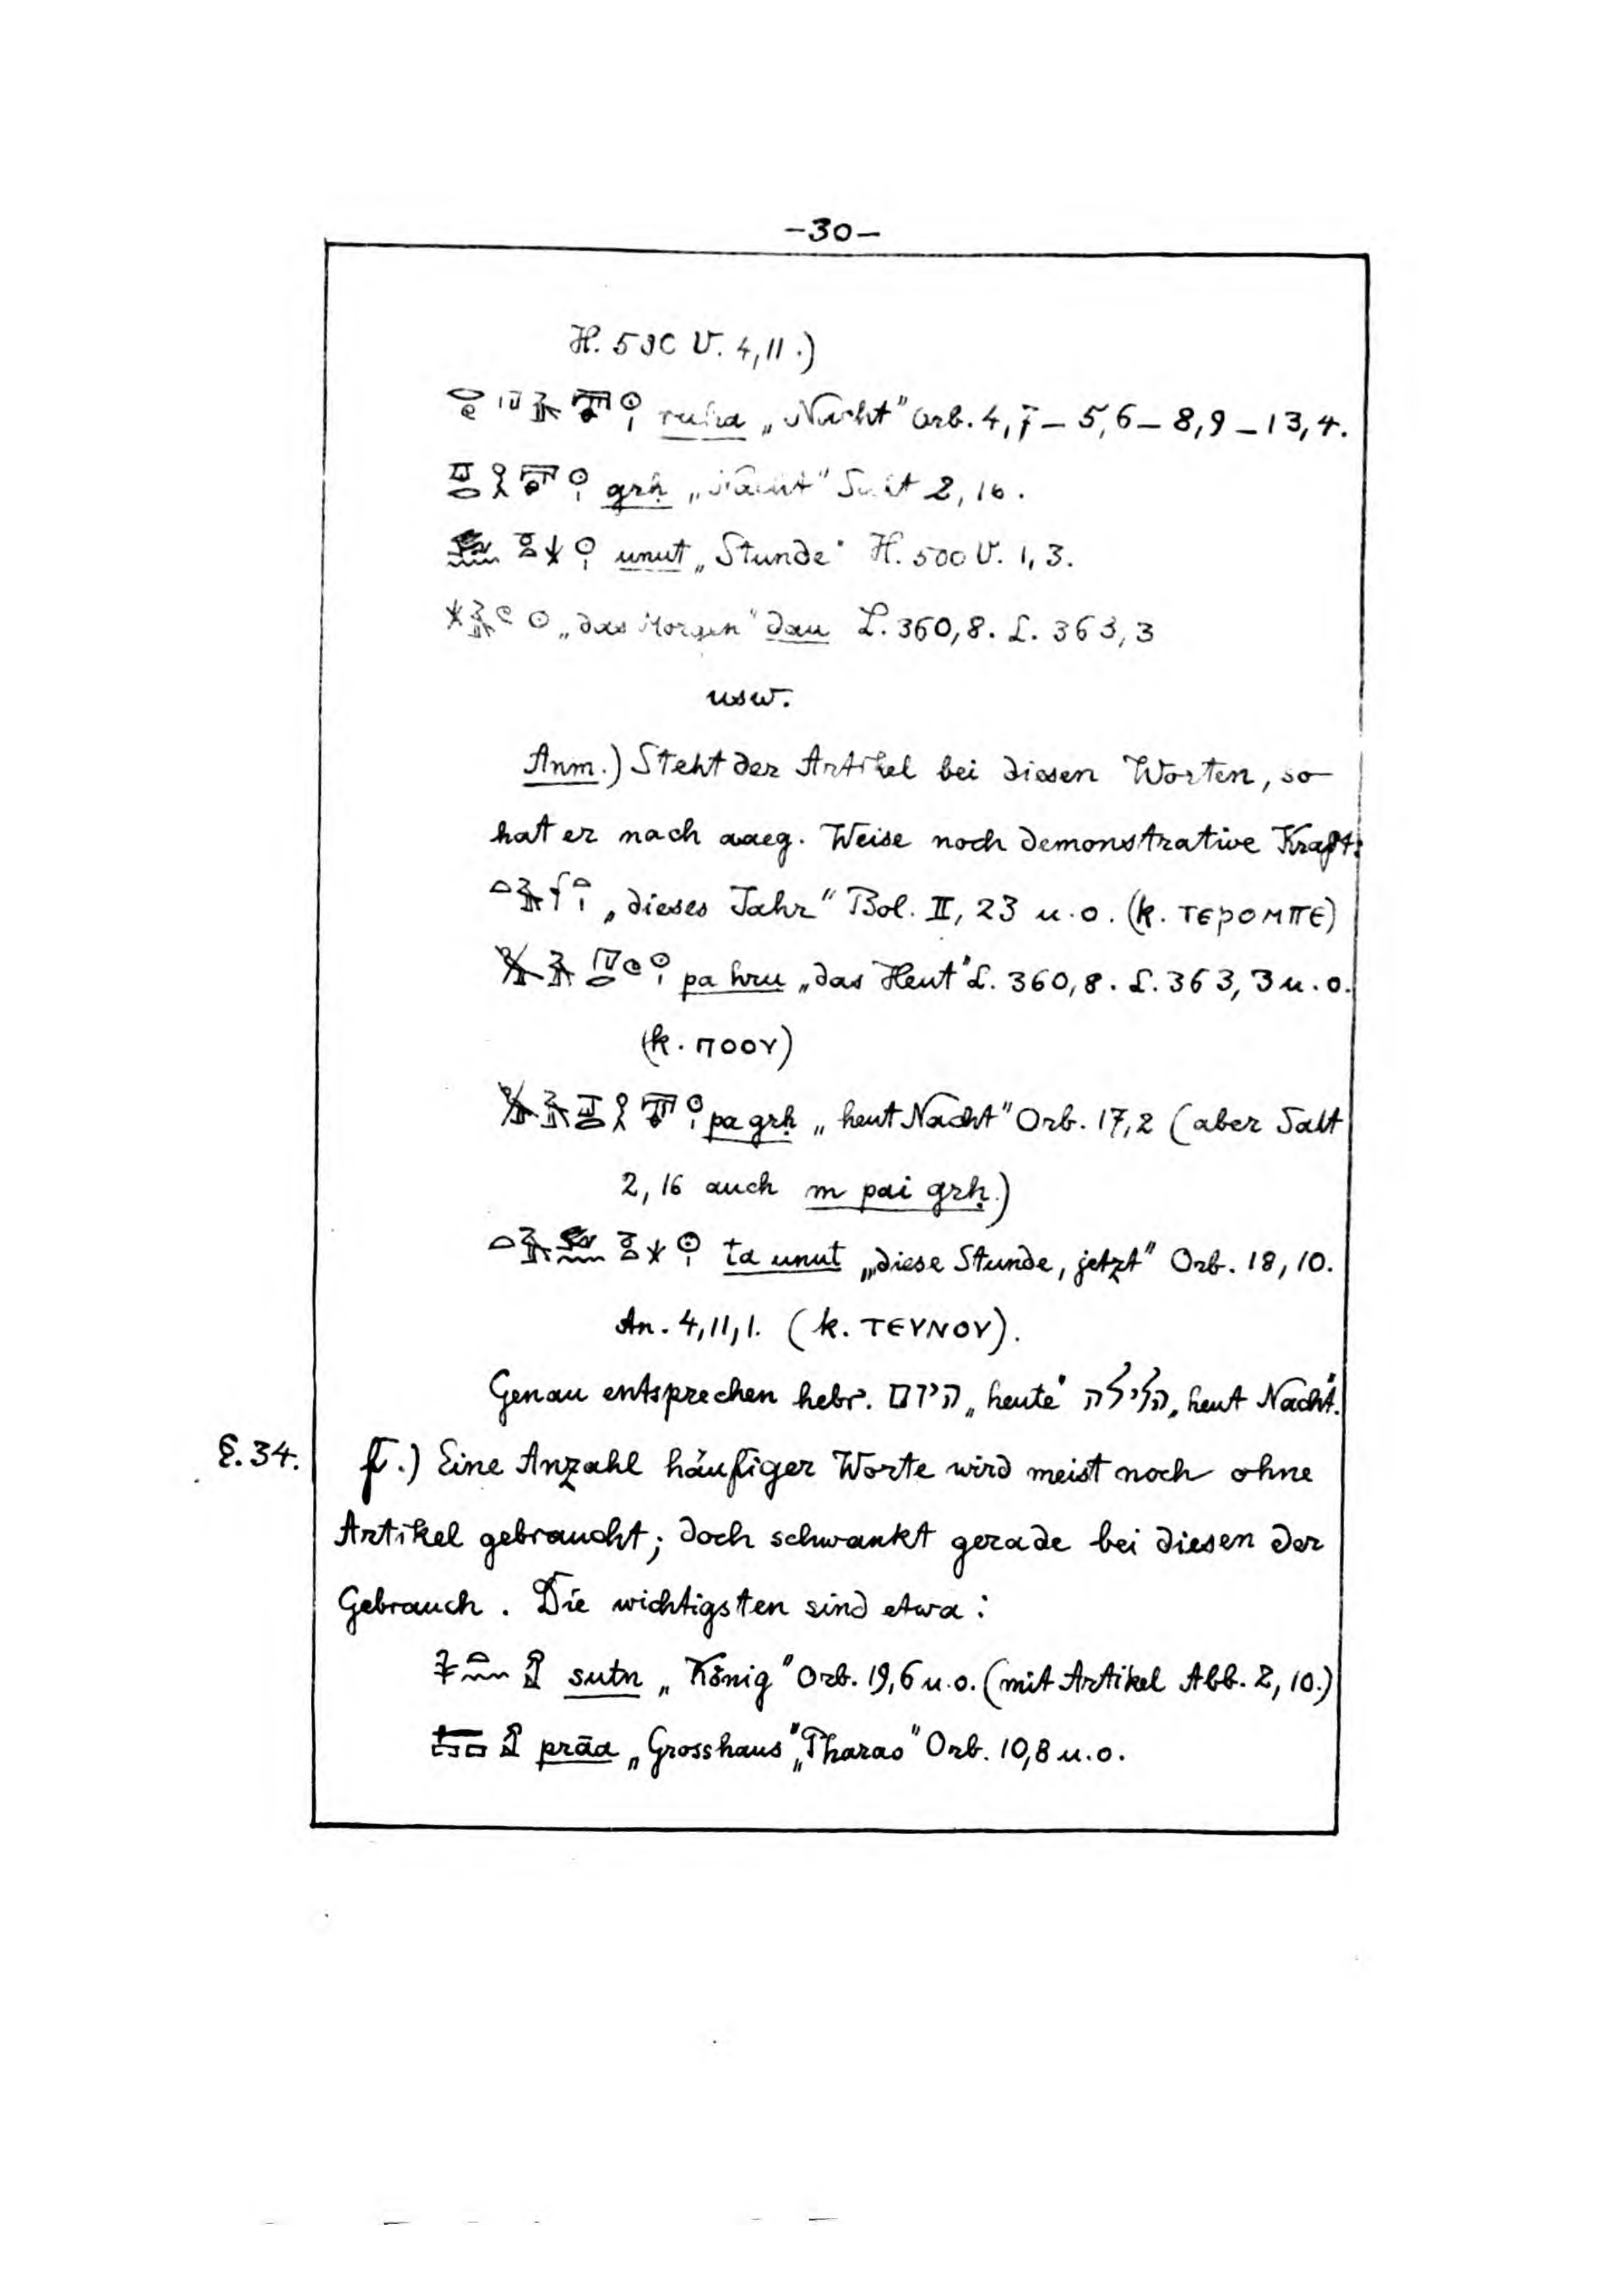 -30-
H. 500 V. 4,11.)
ruha „Nacht" Orb. 4,7 – 5,6 – 8,9 – 13,4.
grḥ „Nacht" Salt 2,16.
unut „Stunde" H. 500 V. 1,3.
„das Morgen" dau L. 360,8. L. 363,3
usw.
Anm.) Steht der Artikel bei diesen Worten, so
hat er nach aaeg. Weise noch demonstrative Kraft:
„dieses Jahr" Bol. II, 23 u.o. (k. ⲧⲉⲣⲟⲙⲡⲉ)
pa hru „das Heut" L. 360,8. L. 363,3 u.o.
(k. ⲡⲟⲟⲩ)
pa grḥ „heut Nacht" Orb. 17,2 (aber Salt
2,16 auch m pai grḥ.)
ta unut „diese Stunde, jetzt" Orb. 18,10.
An. 4,11,1. (k. ⲧⲉⲩⲛⲟⲩ).
Genau entsprechen hebr. היום „heute" הלילה „heut Nacht".
§.34. f.) Eine Anzahl häufiger Worte wird meist noch ohne
Artikel gebraucht; doch schwankt gerade bei diesen der
Gebrauch. Die wichtigsten sind etwa:
sutn „König" Orb. 19,6 u.o. (mit Artikel Abb. 2,10.)
prāa „Grosshaus" „Pharao" Orb. 10,8 u.o.